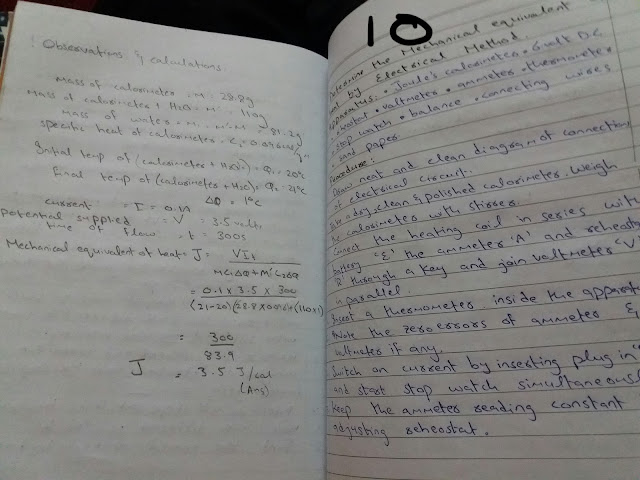 ! Observations & calculations.
Mass of calorimeter = M : 28.8g
Mass of calorimeter + H2O = M' = 110g
Mass of water = M2 = M'-M = 81.2g
specific heat of calorimeter = C1 =
Initial temp of (calorimeter + H2O) = Q1 = 20°C
Final temp of (calorimeter + H2O) = Q2 = 21°C
ΔQ = 1°C
current = I = 0.1A
Potential supplied = V = 3.5 volts,
time of flow = t = 300s
Mechanical equivalent of heat = J = VIt
MC1ΔQ + M'C2ΔQ
= 0.1 x 3.5 x 300
(21-20)
= 300
83.9
J = 3.5 J/cal
(Ans)
10
Determine the Mechanical equivalent
by Electrical Method.
Apparatus: • Joule's calorimeter • 6 volt D.C
• voltmeter • ammeter • thermometer
• stop watch • balance • connecting wires
• sand paper
Procedure:
Draw neat and clean diagram of connection
of electrical circuit.
a dry, clean & polished calorimeter. Weigh
the calorimeter with stirrer.
Connect the heating coil in series with
battery "E" the ammeter 'A' and reheosta
'R' through a key and join valtmeter "V"
in parallel.
Insert a thermometer inside the apparat
Note the zero errors of ammeter &
valtmeter if any.
Switch on current by inserting plug in
and start stop watch simultaneousl
Keep the ammeter reading constant
adjusting reheostat.